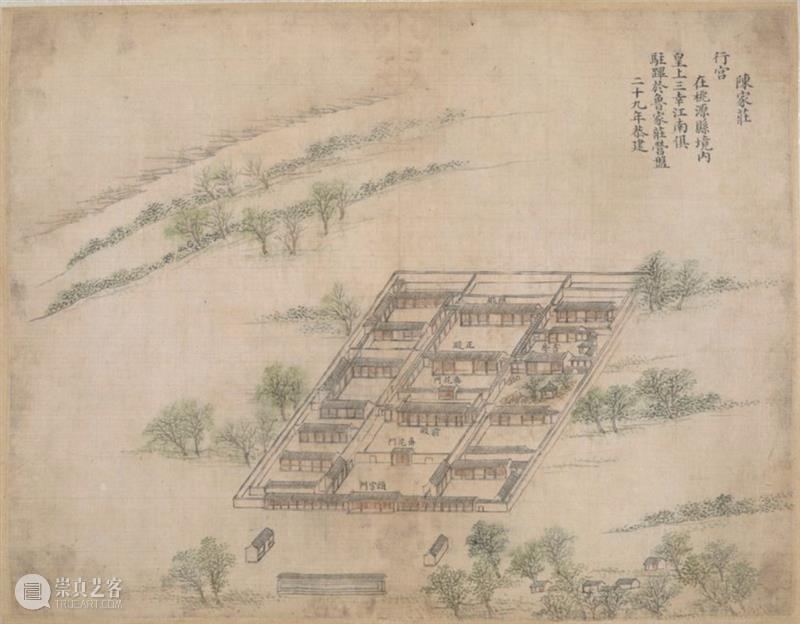 陳家莊
行宮
在桃源縣境內
皇上三幸江南俱
駐蹕於魯家莊營盤
二十九年恭建
正殿
垂花門
前殿
垂花門
頭宮門
崇真艺客
TRUEART.COM